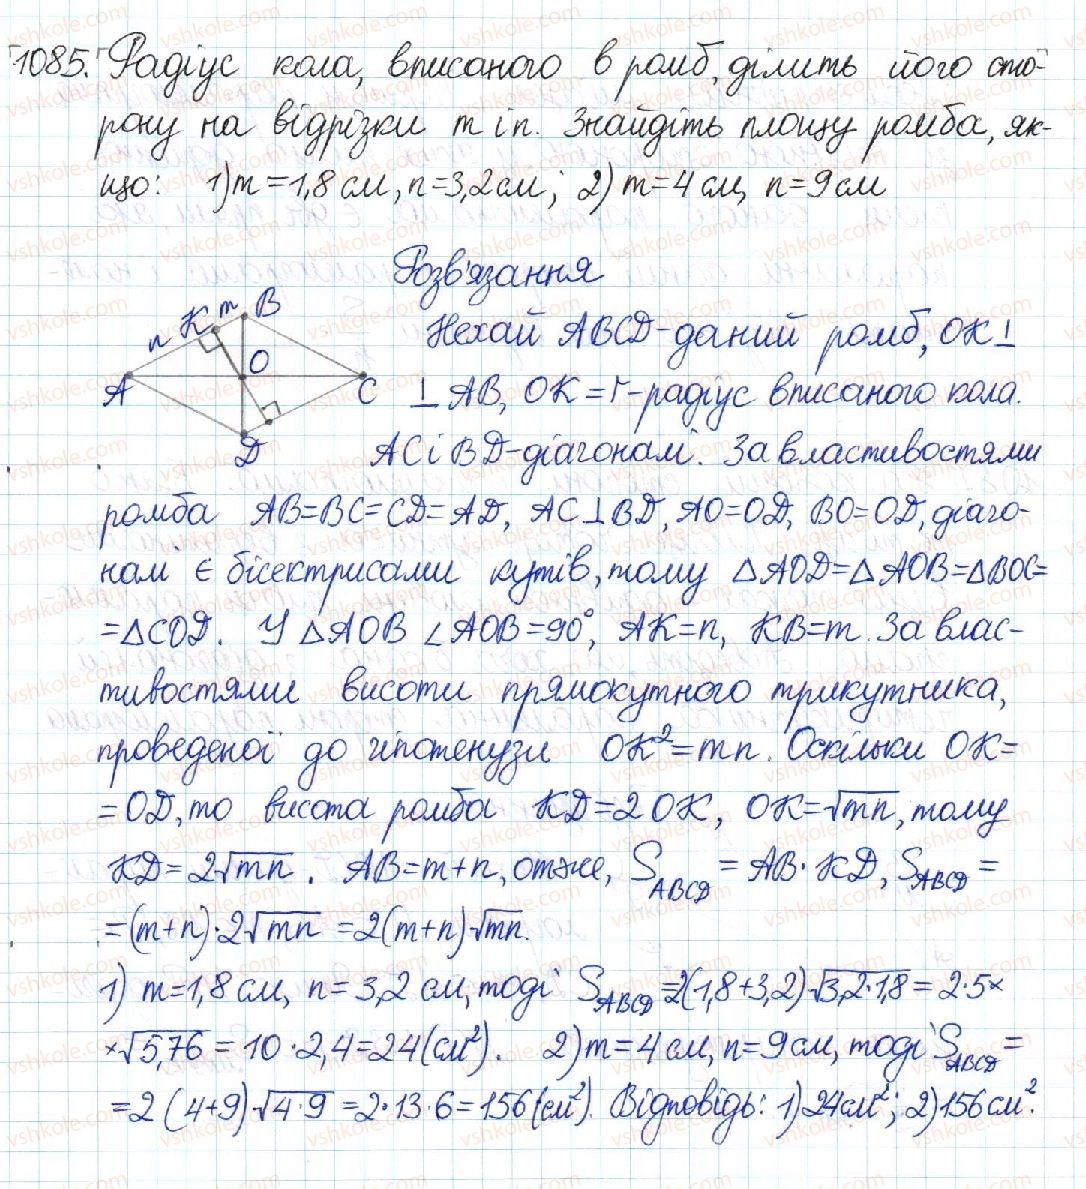 1085. Радіус кола, вписаного в ромб, ділить його сто-
рону на відрізки m і n. Знайдіть площу ромба, як-
що: 1) m=1,8 см, n=3,2 см; 2) m=4 см, n=9 см
Розв'язання
n K m B
O
A C
D
Нехай ABCD-даний ромб, OK⊥
⊥AB, OK=r-радіус вписаного кола.
AC і BD-діагоналі. За властивостями
ромба AB=BC=CD=AD, AC⊥BD, AO=OD, BO=OD, діаго-
налі є бісектрисами кутів, тому △AOD=△AOB=△BOC=
=△COD. У △AOB ∠AOB=90°, AK=n, KB=m. За влас-
тивостями висоти прямокутного трикутника,
проведеної до гіпотенузи OK²=mn. Оскільки OK=
=OD, то висота ромба KD=2OK, OK=√mn, тому
KD=2√mn. AB=m+n, отже, S_ABCD=AB·KD, S_ABCD=
=(m+n)·2√mn=2(m+n)√mn.
1) m=1,8 см, n=3,2 см, тоді S_ABCD=2(1,8+3,2)√3,2·1,8=2·5×
×√5,76=10·2,4=24(см²). 2) m=4 см, n=9 см, тоді S_ABCD=
=2(4+9)√4·9=2·13·6=156(см²). Відповідь: 1) 24см²; 2) 156см².